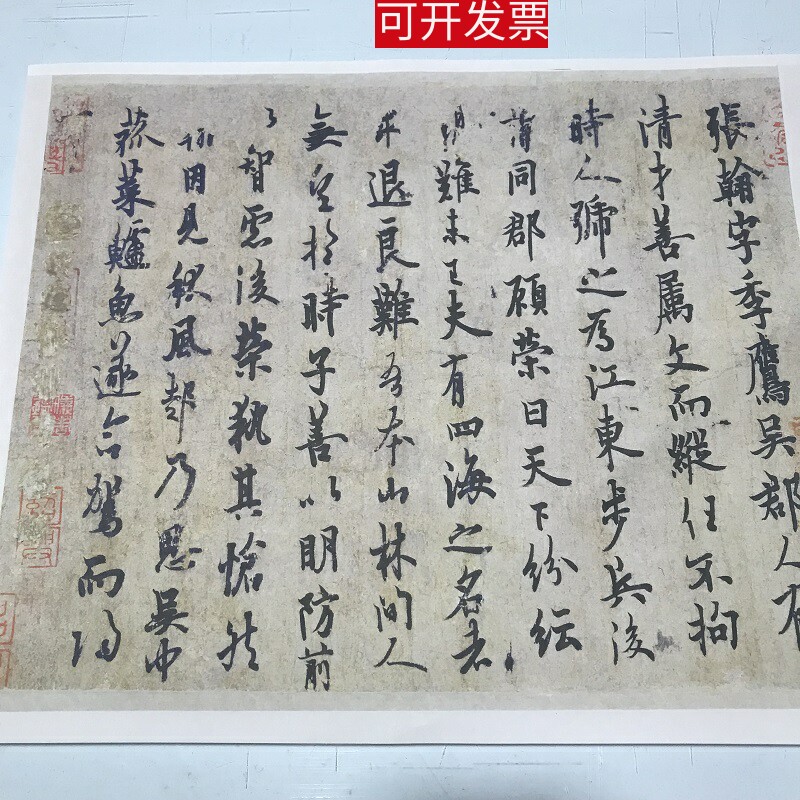 可开发票
張翰字季鷹吳郡人有
清才善屬文而縱任不拘
時人號之為江東步兵後
謂同郡顧榮曰天下紛紜
難未已夫有四海之名者
求退良難吾本山林間人
無望於時子善以明防前
以智慮後榮執其愴然
翰因見秋風起乃思吳中
菰菜鱸魚遂命駕而歸